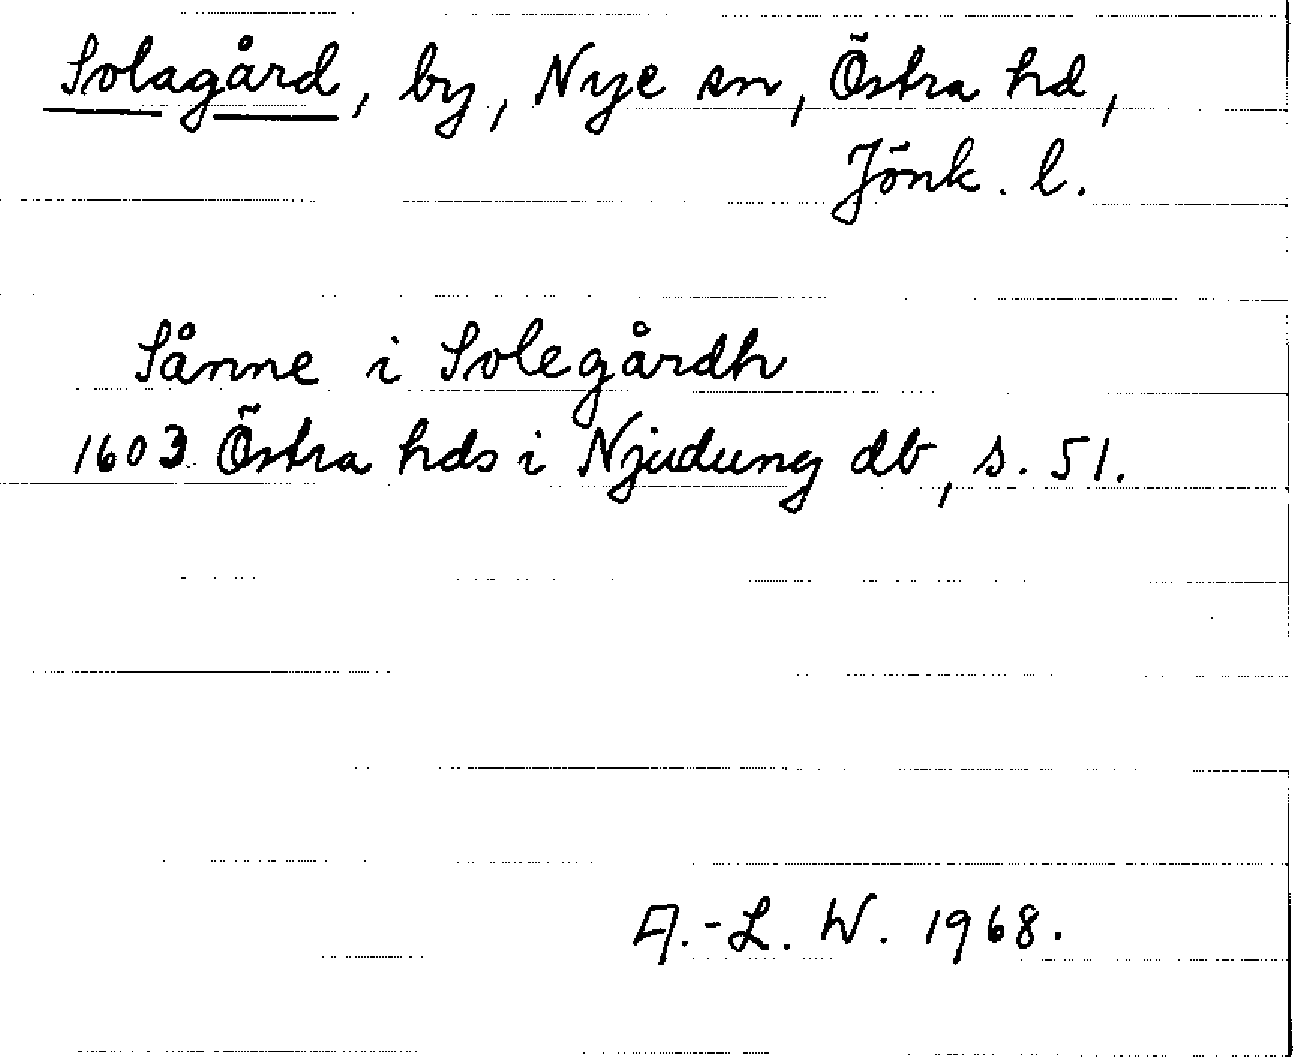 Solagård, by, Nye sn, Östra hd,
Jönk. l.
Sånne i Solegårdh
1603 Östra hds i Njudung db, s. 51.
A.-L. W. 1968.